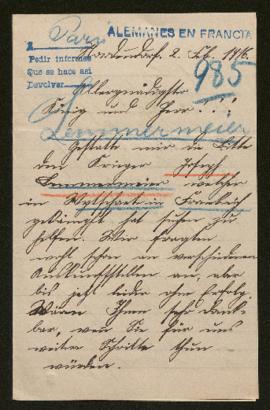 Paris
ALEMANES EN FRANCIA
A
Pedir informes
Que se hace así
Devolver
2. Feb. 1916.
985
Allergnädigster
König und Herr!
Lemmermeier
Gestatte mir die Bitte
den Krieger Joseph
Lemmermeier welcher
in in Frankreich
hat suchen zu
helfen. Wir fragten
wohl schon an verschiedenen
Auskunftstellen an, aber
bis jetzt leider ohne Erfolg.
Waren Ihnen sehr dank-
bar, wen Sie für uns
weitere Schritte thun
würden.